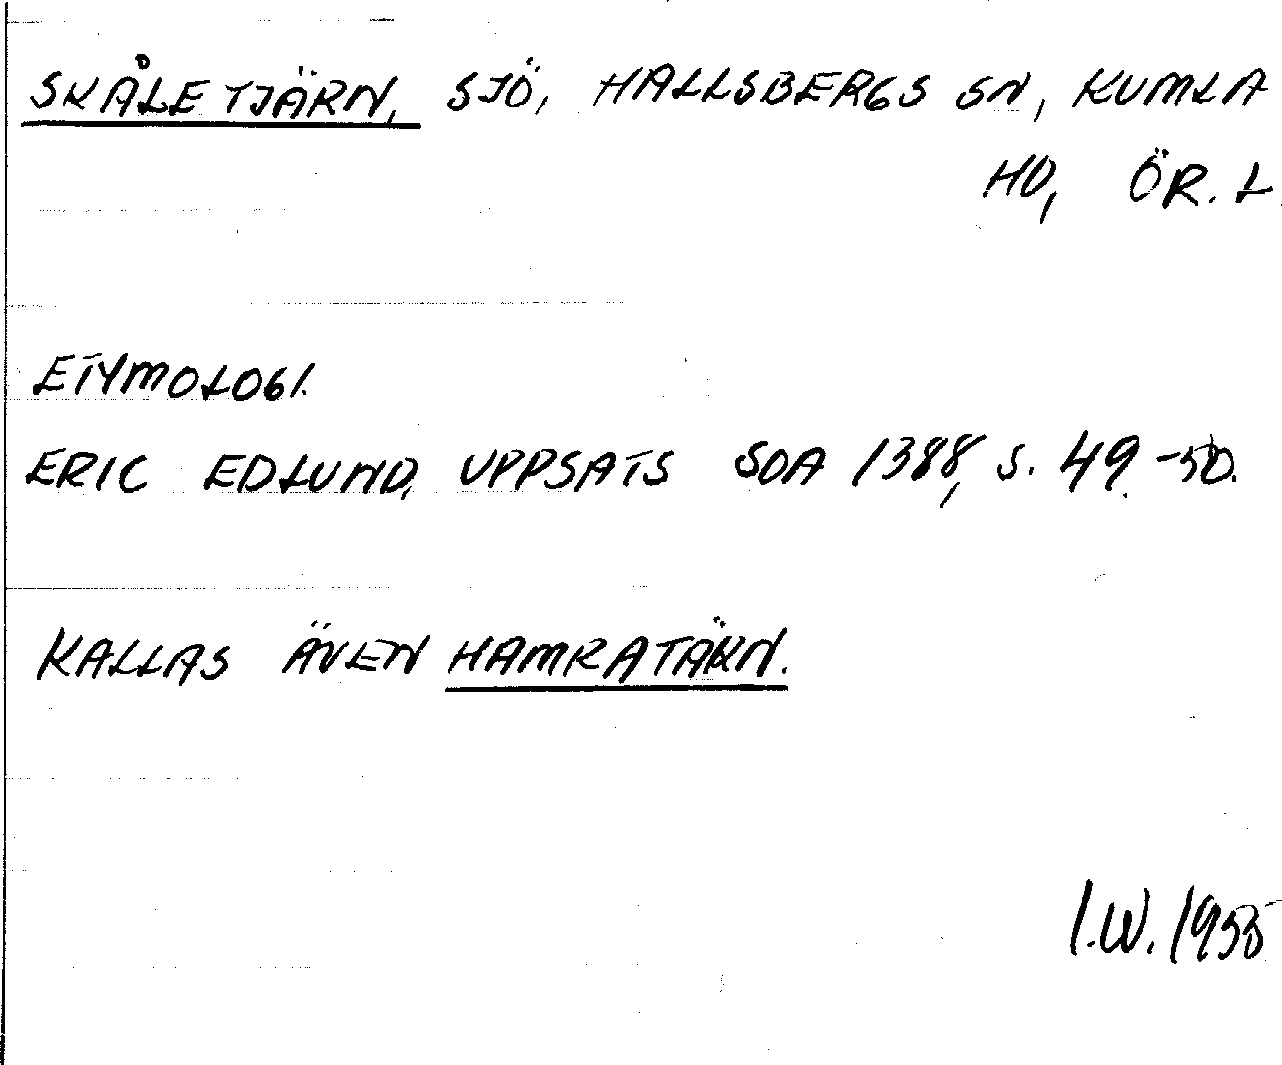 SKÅLETJÄRN, SJÖ, HALLSBERGS SN, KUMLA
HD, ÖR. L
ETYMOLOGI.
ERIC EDLUND, UPPSATS SOA 1388, S. 49-50.
KALLAS ÄVEN HAMRATÄRN.
I.W. 1955